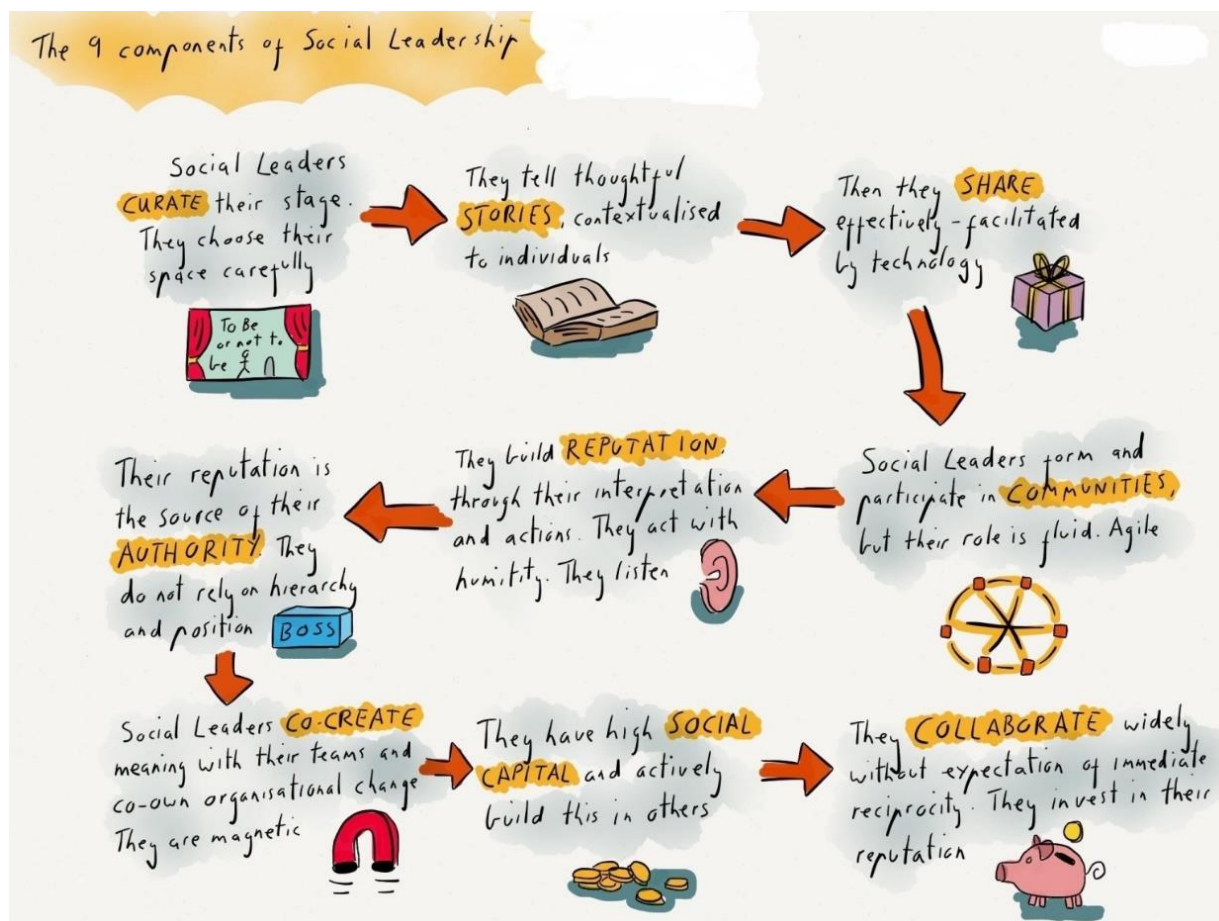 The 9 components of Social Leadership
Social Leaders
CURATE their stage.
They choose their
space carefully
To Be
or not to
be
They tell thoughtful
STORIES, contextualised
to individuals
Then they SHARE
effectively - facilitated
by technology
Social Leaders form and
participate in COMMUNITIES,
but their role is fluid. Agile
They build REPUTATION,
through their interpretation
and actions. They act with
humitity. They listen
Their reputation is
the source of their
AUTHORITY. They
do not rely on hierarchy
and position
BOSS
Social Leaders CO-CREATE
meaning with their teams and
co-own organisational change
They are magnetic
They have high SOCIAL
CAPITAL and actively
build this in others
They COLLABORATE widely
without expectation of immediate
reciprocity. They invest in their
reputation